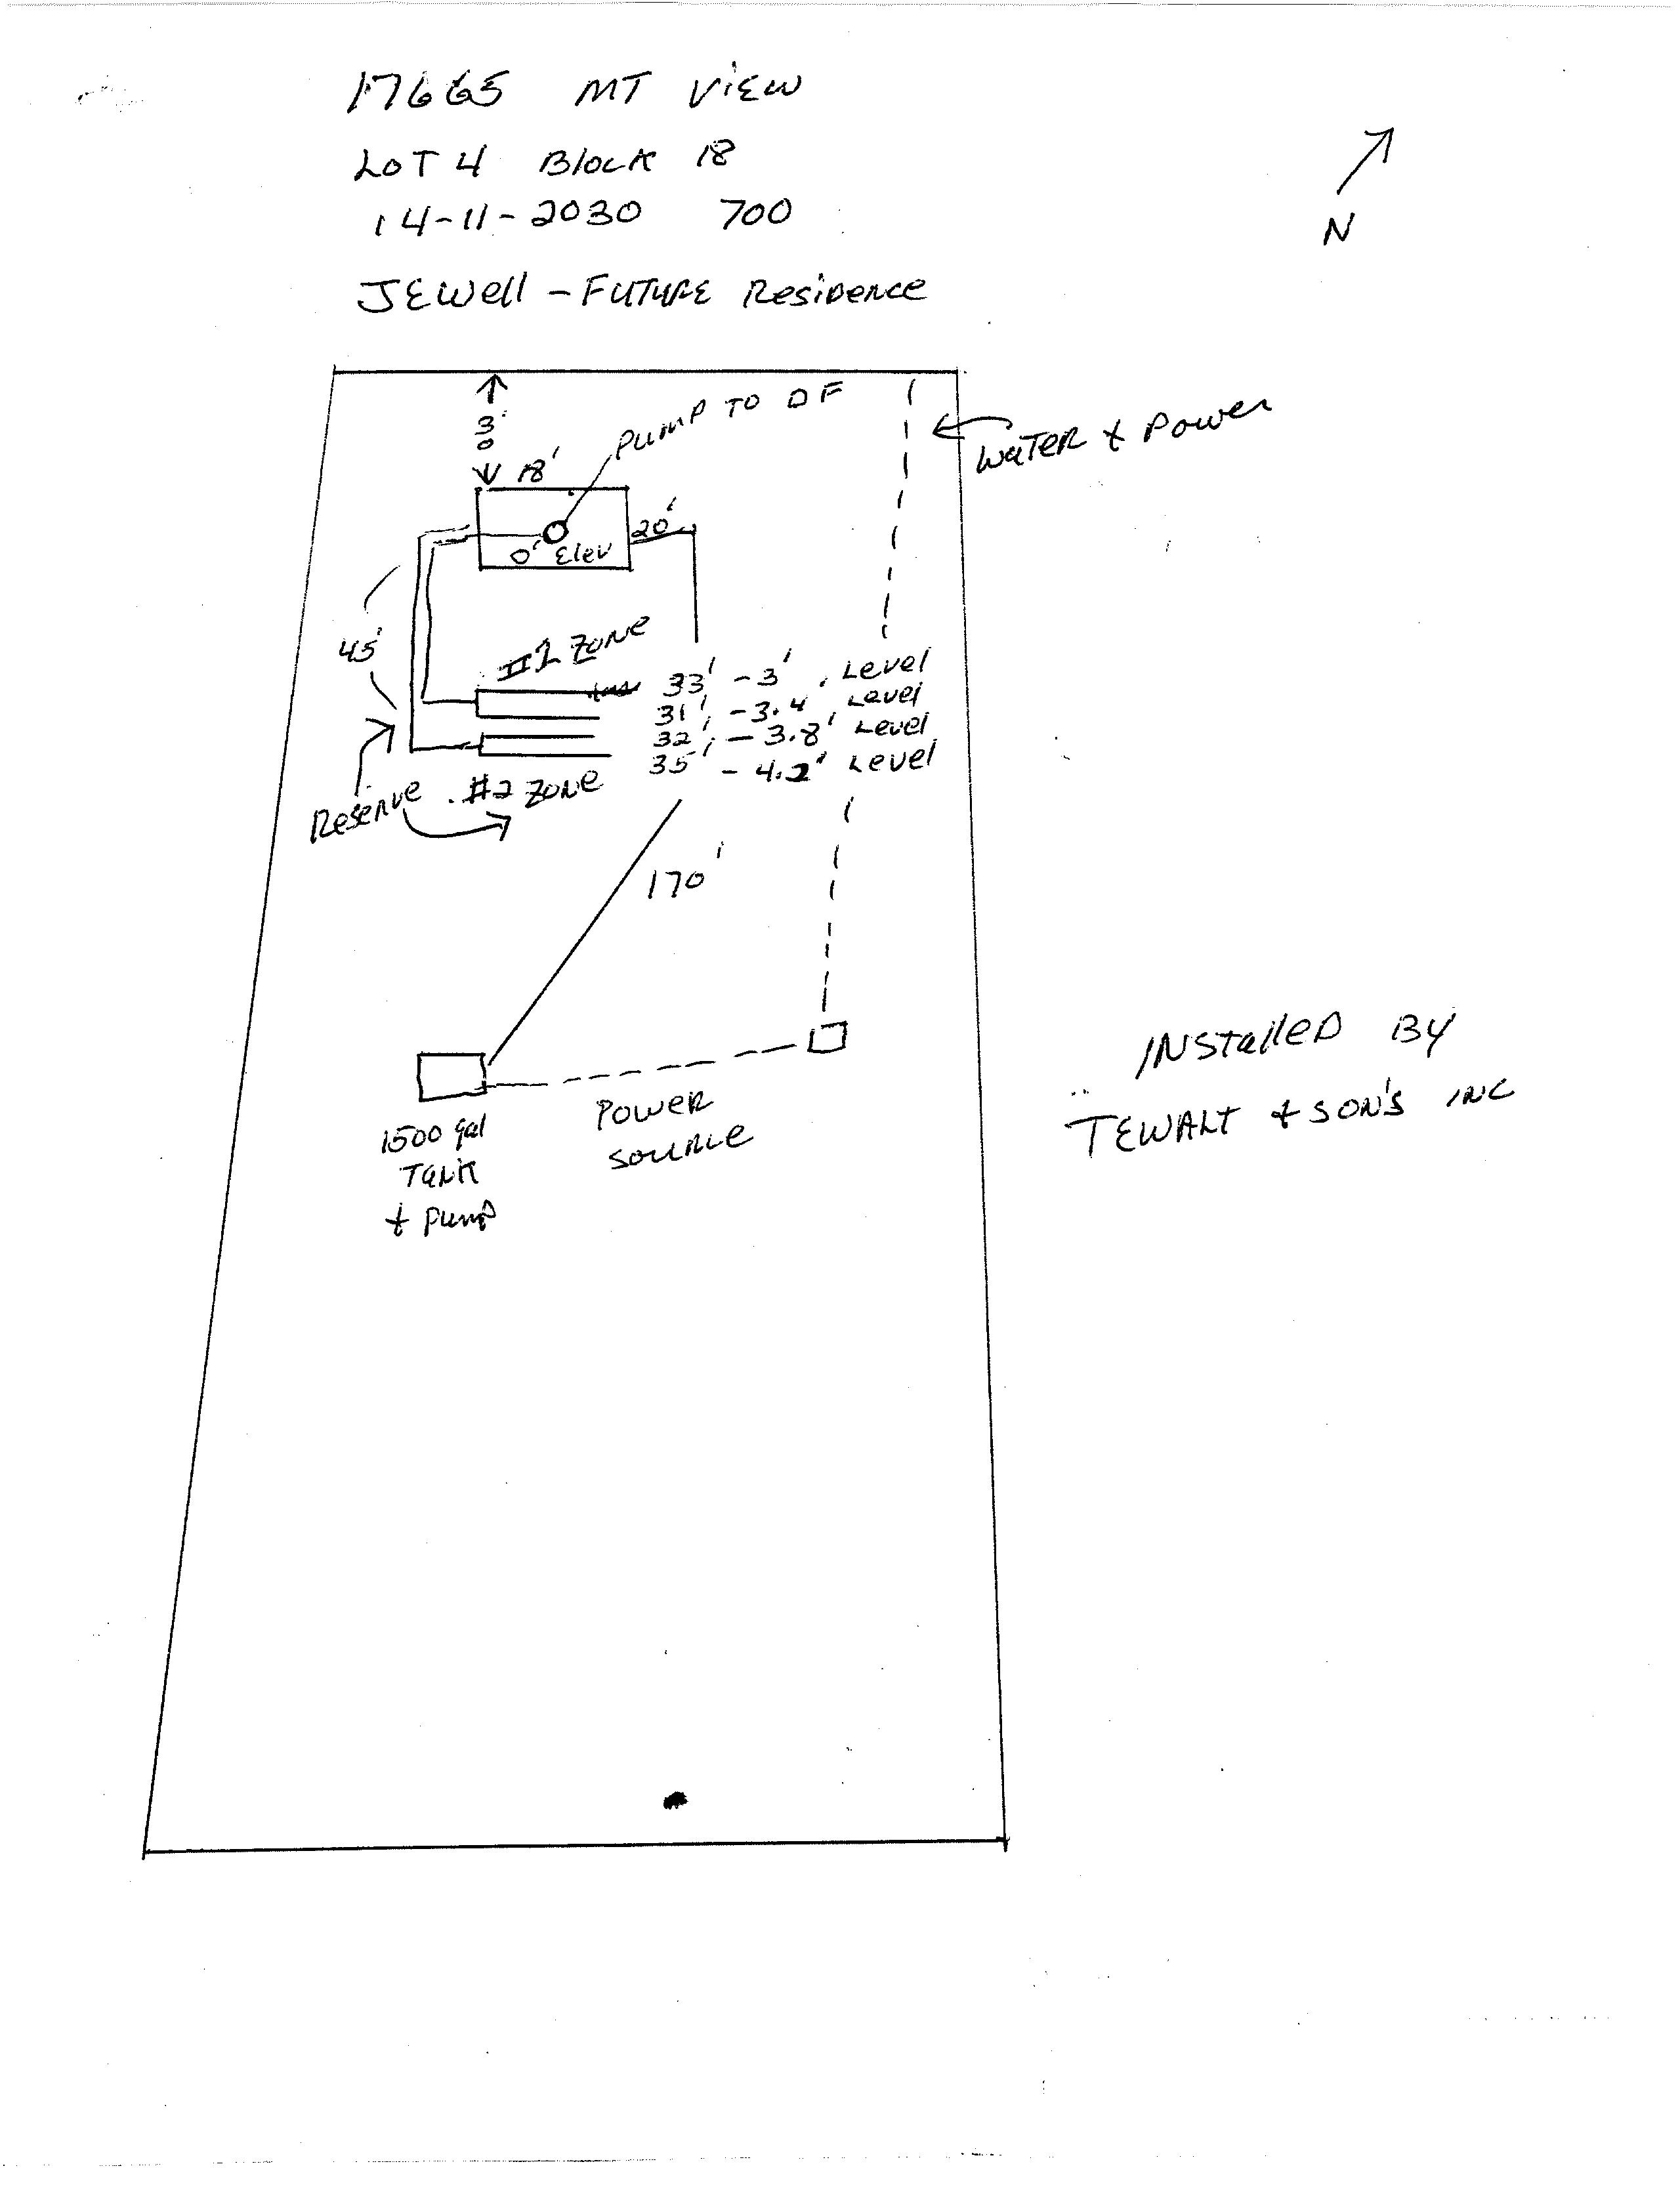 17665 MT VIEW
LOT 4 Block 18
14-11-2030 700
JEWell - FUTURE Residence
N
30'
18'
PUMP TO DF
WATER & POWER
20'
0' Elev
45'
#1 ZONE
33' - 3' Level
31' - 3.4' Level
32' - 3.8' Level
35' - 4.2' Level
Reserve #2 ZONE
170'
1500 gal
TANK
& PUMP
POWER
SOURCE
INSTALLED BY
TEWALT & SON'S INC